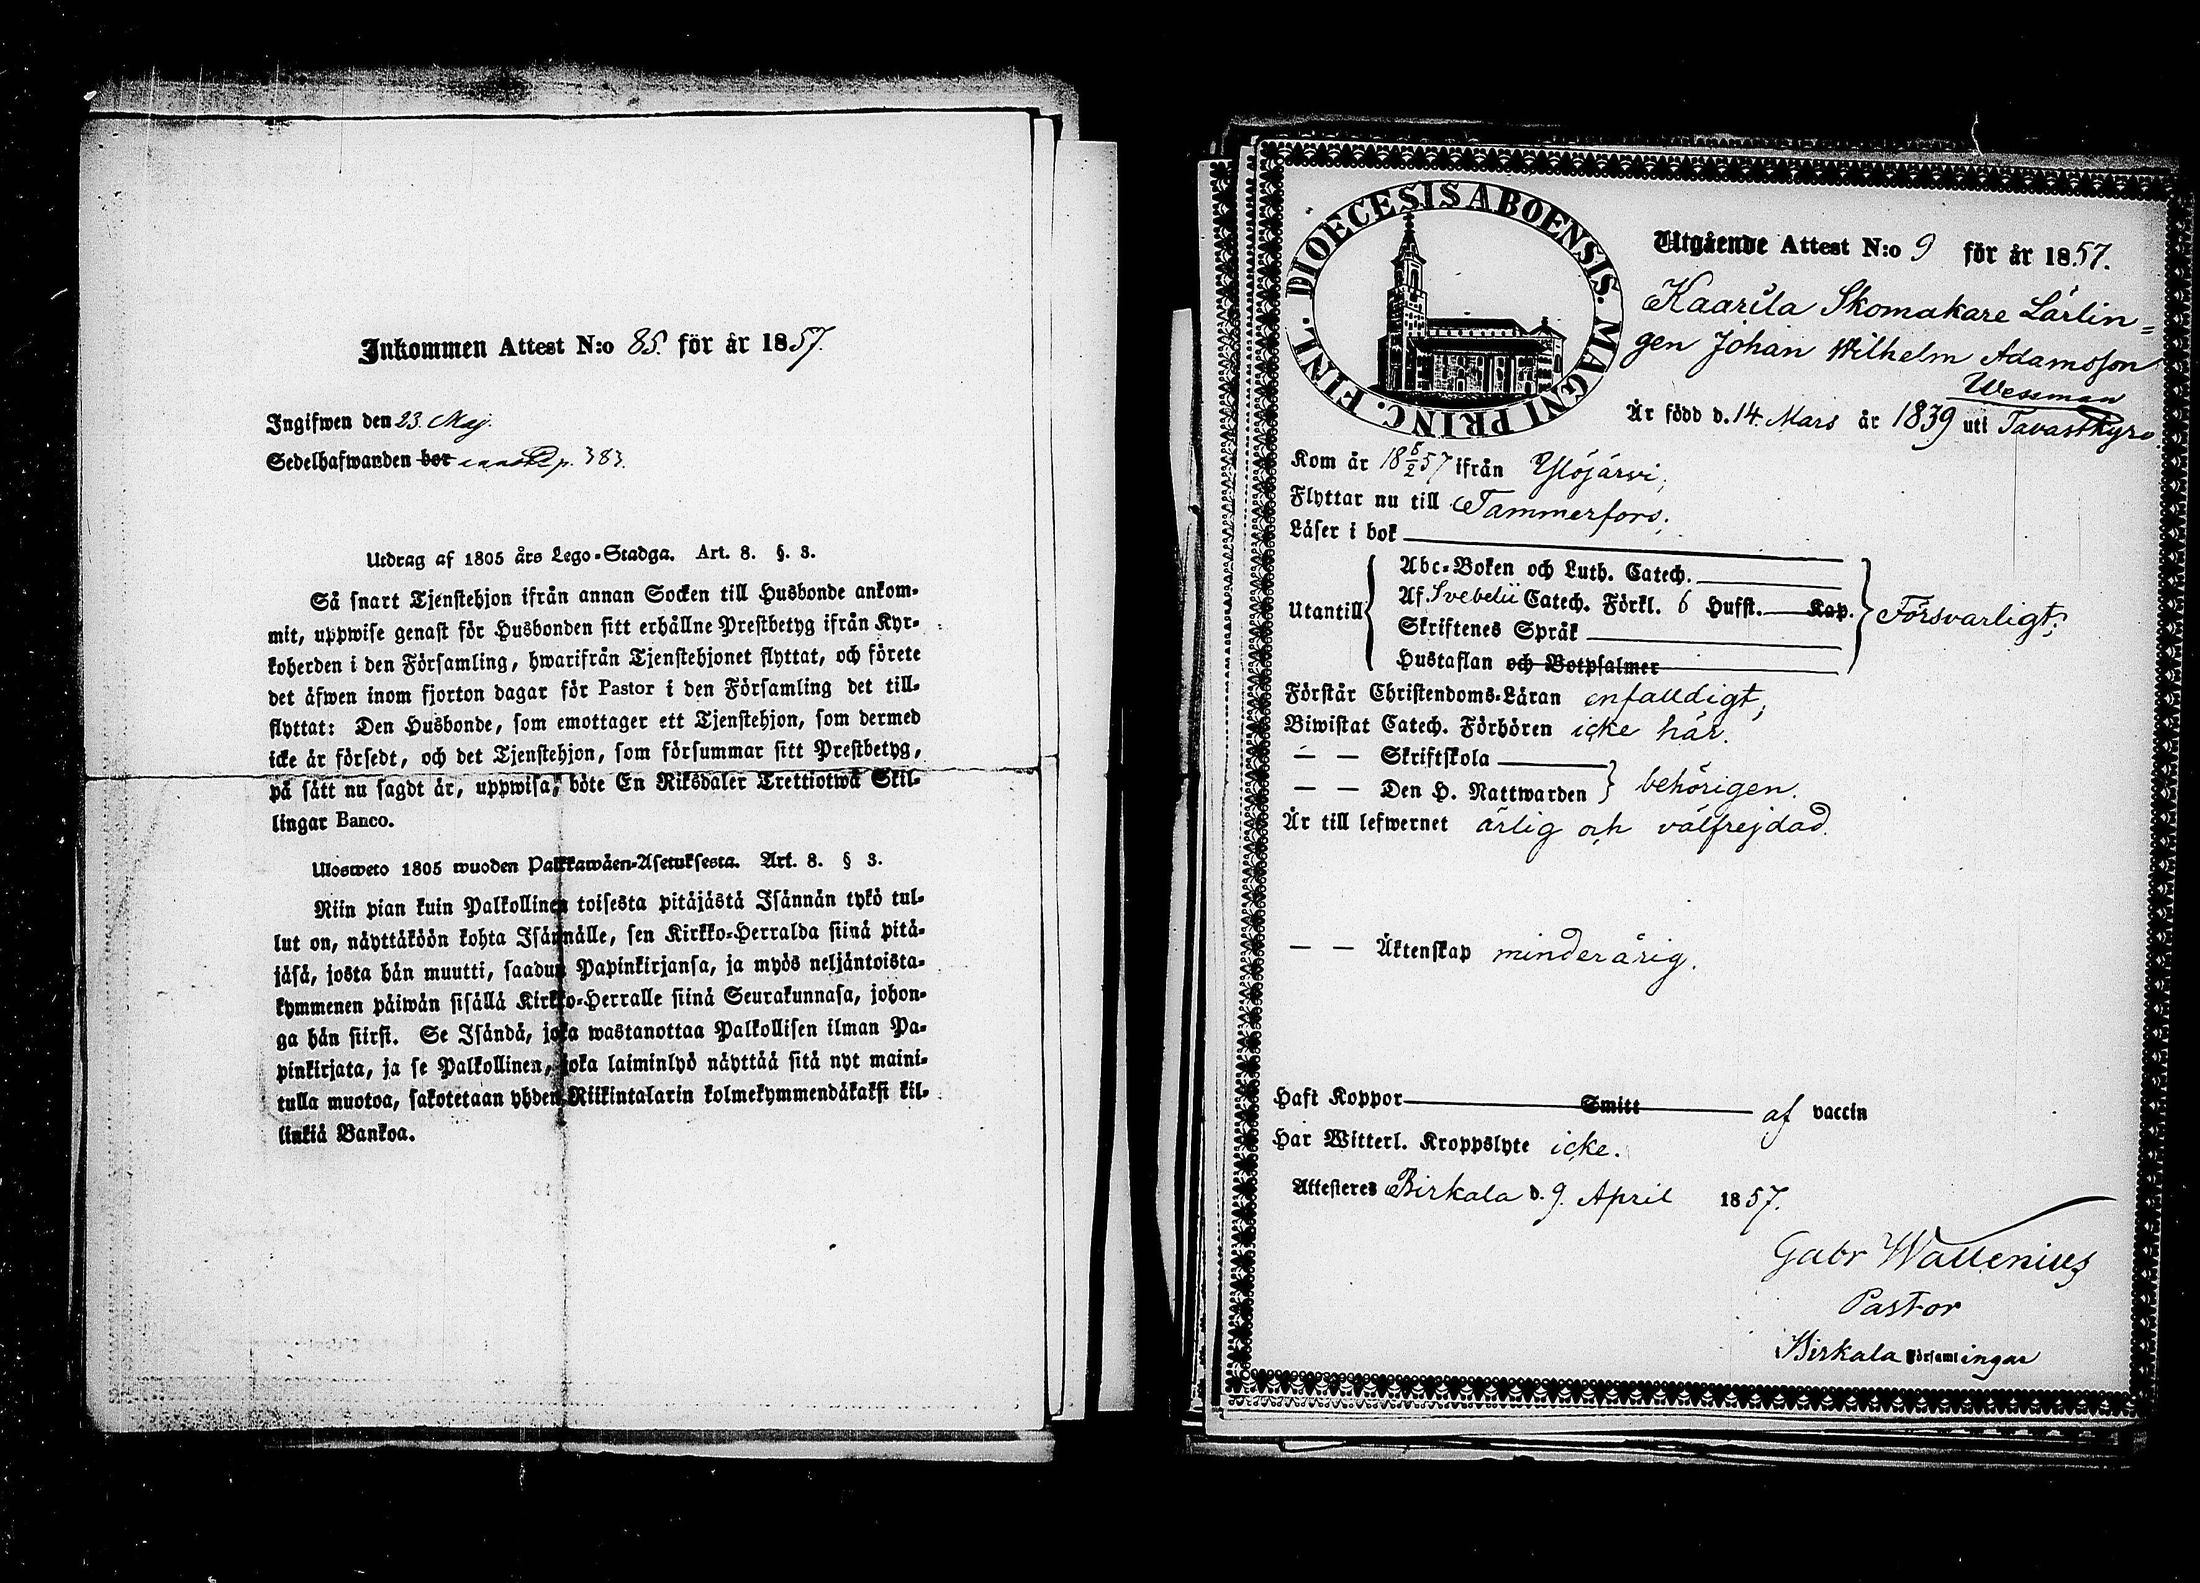 Inkommen Attest N:o 85. för år 1857.
Ingifwen den 23. Maj.
Sedelhafwanden bor p. 383.
Utdrag af 1805 års Lego-Stadga. Art. 8. §. 3.
Så snart Tjenstehjon ifrån annan Socken till Husbonde ankom-
mit, uppwise genast för Husbonden sitt erhållne Prestbetyg ifrån Kyr-
koherden i den Församling, hwarifrån Tjenstehjonet flyttat, och förete
det äfwen inom fjorton dagar för Pastor i den Församling det till-
flyttat: Den Husbonde, som emottager ett Tjenstehjon, som dermed
icke är försedt, och det Tjenstehjon, som försummar sitt Prestbetyg,
på sätt nu sagdt är, uppwisa, böte En Riksdaler Trettiotwå Skil-
lingar Banco.
Ulosweto 1805 wuoden Palkkawäen-Asetuksesta. Art. 8. § 3.
Niin pian kuin Palkollinen toisesta pitäjästä Isännän tykö tul-
lut on, näyttäköön kohta Isännälle, sen Kirkko-Herralda siinä pitä-
jäsä, josta hän muutti, saadun Papinkirjansa, ja myös neljäntoista-
kymmenen päiwän sisällä Kirkko-Herralle siinä Seurakunnasa, johon-
ga hän siirsi. Se Isändä, joka wastanottaa Palkollisen ilman Pa-
pinkirjata, ja se Palkollinen, joka laiminlyö näyttää sitä nyt maini-
tulla muotoa, sakotetaan yhden Riikintalarin kolmekymmendäkaksi kil-
linkiä Bankoa.
DIOECESIS ABOENSIS. MAGNI PRINC. FINL.
Utgående Attest N:o 9 för år 1857.
Kaarila Skomakare Lärlin=
gen Johan Wilhelm Adamsson
Wessman
Är född d. 14. Mars år 1839 uti Tavastkyro
Kom år 18 5/2 57 ifrån Ylöjärvi;
Flyttar nu till Tammerfors;
Läser i bok
Utantill
Abc-Boken och Luth. Catech.
Af Svebelii Catech. Förkl. 6 Hufst. Kap.
Skriftenes Språk
Hustaflan och Botpsalmer
Försvarligt;
Förstår Christendoms-Läran enfalldigt;
Biwistat Catech. Förhören icke här.
— — Skriftskola
— — Den H. Nattwarden
behörigen.
Är till lefwernet ärlig och välfrejdad.
— — Äktenskap minderårig.
Haft Koppor Smitt af vaccin
Har Witterl. Kroppslyte icke.
Attesteres Birkala d. 9. April 1857.
Gabr Wallenius
Pastor
Birkala Församlingar